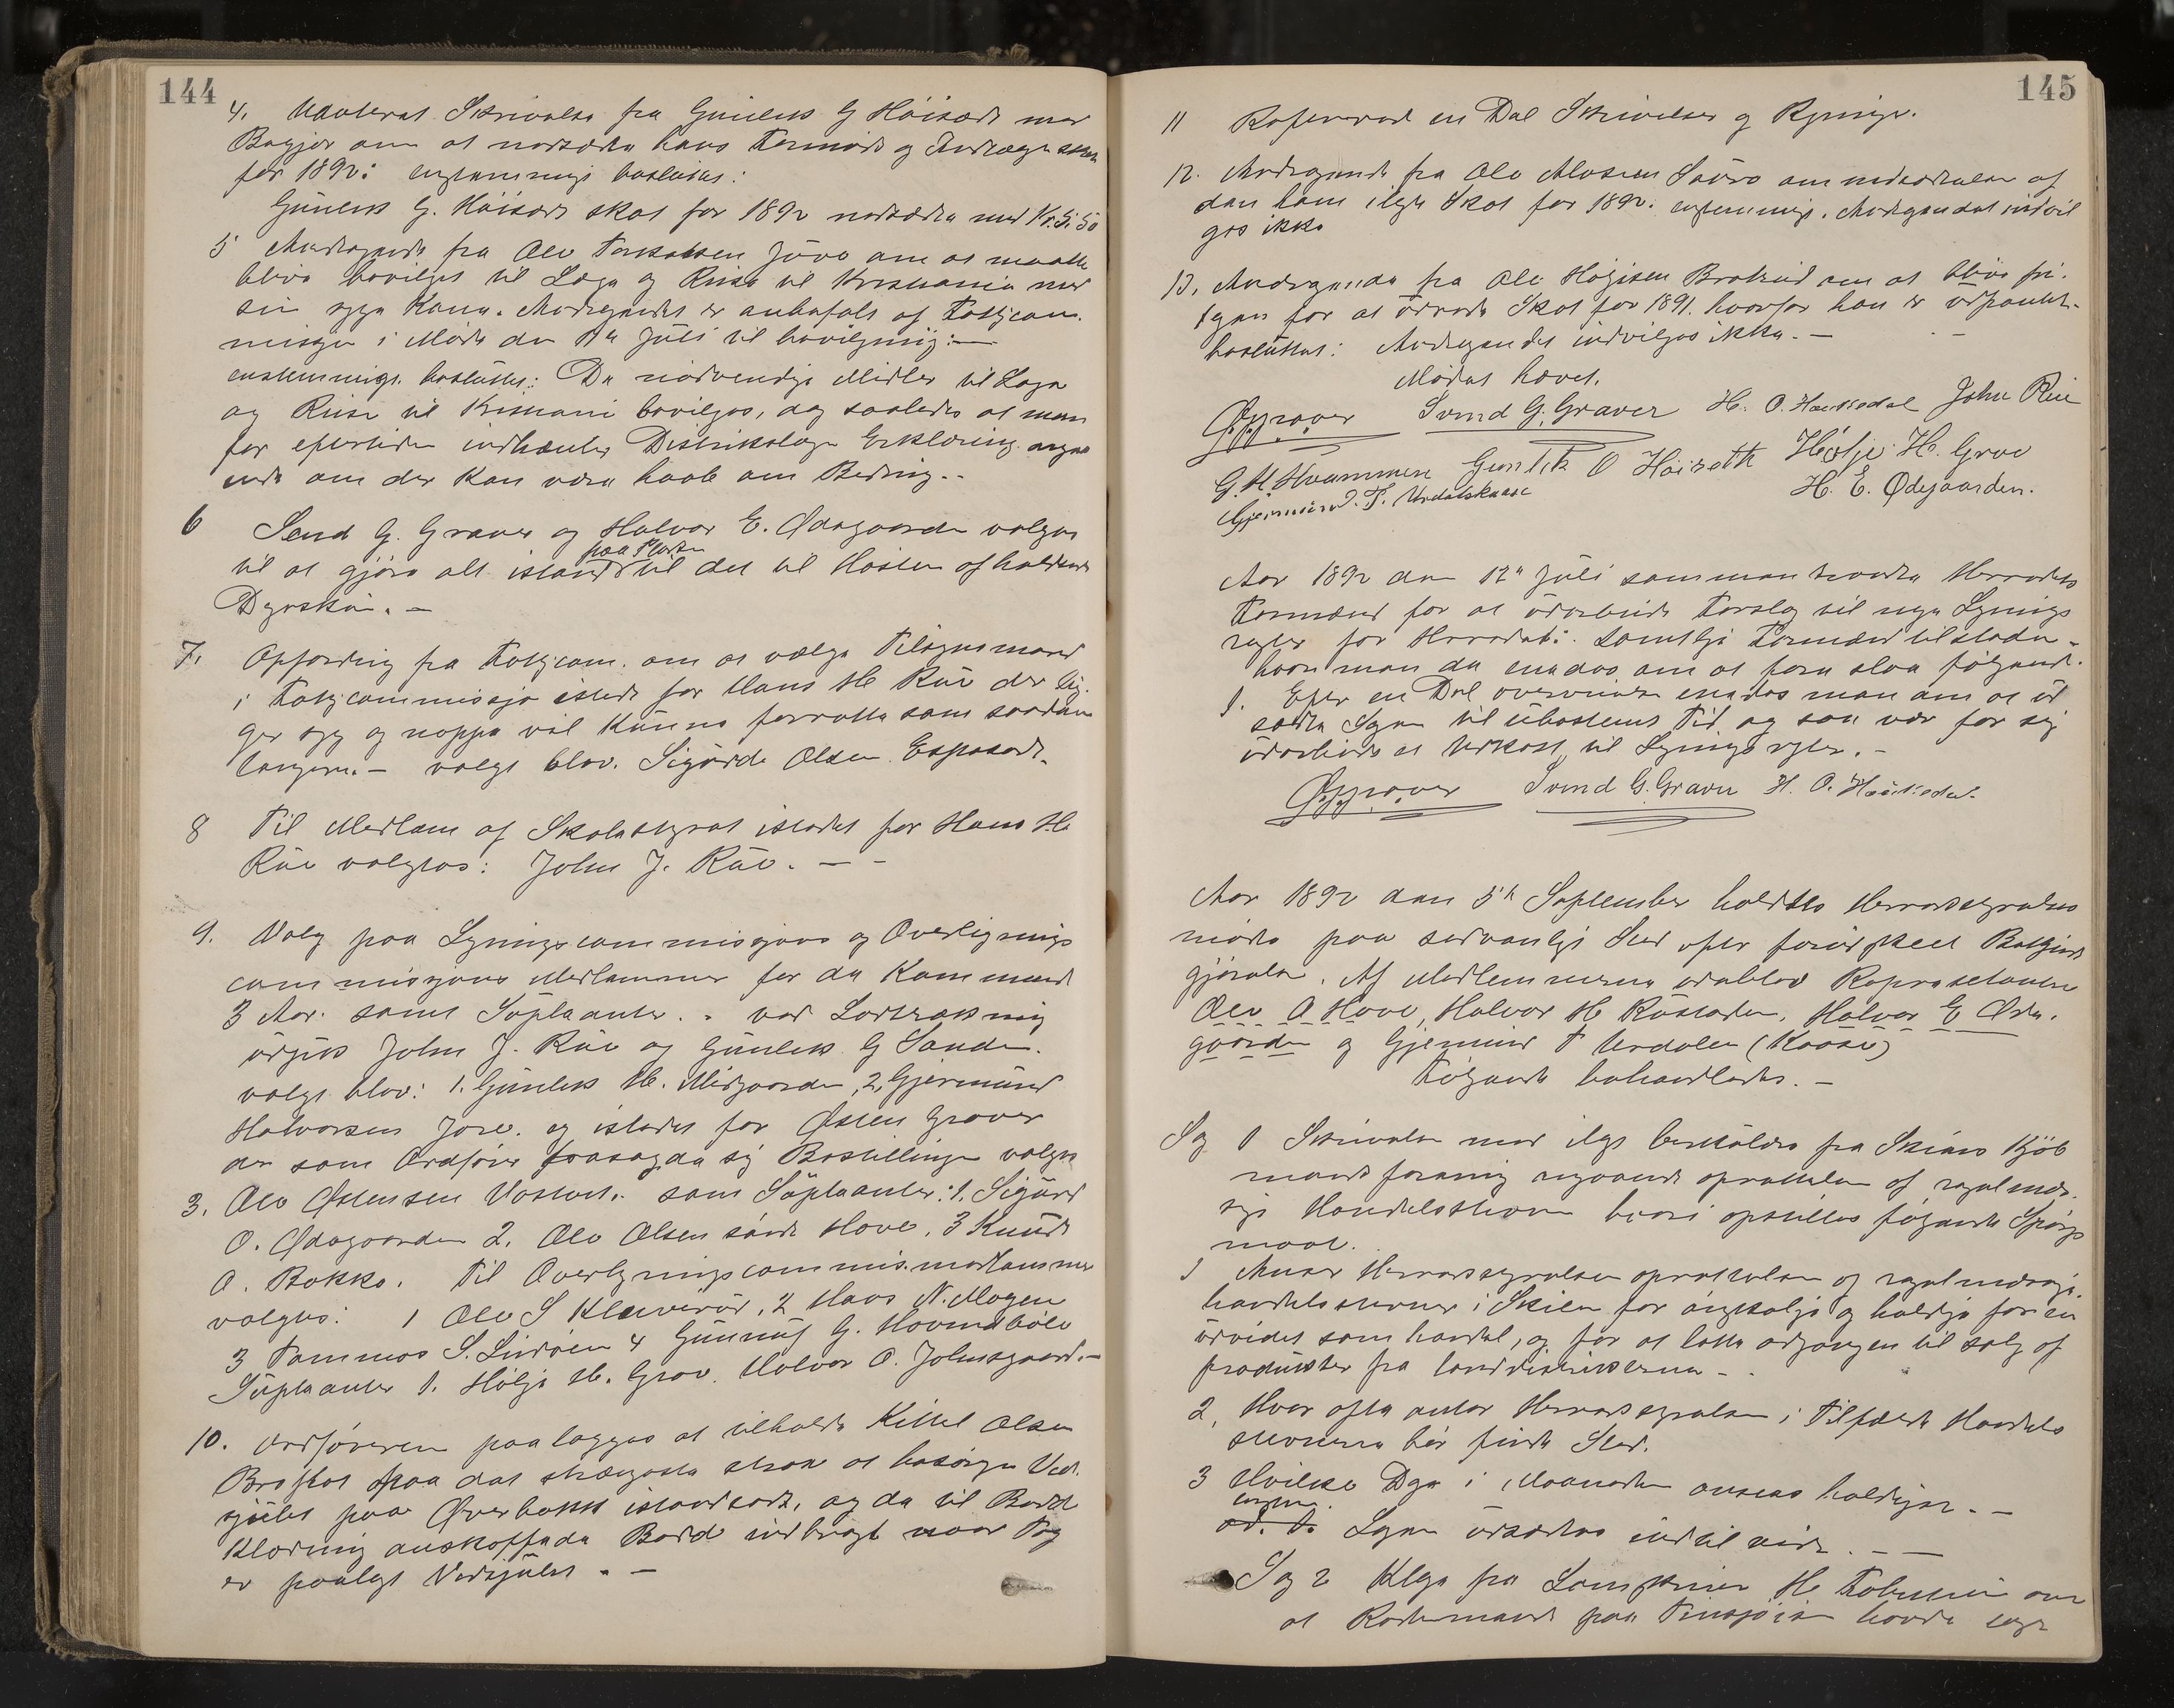 144
4. Skrivelse fra Gunleik G Høisæt med
Begjær om at nedsætte hans Formue og
for 1892: enstemmigt besluttes:
Gunleik G. Høisæt skat for 1892 nedsættes med Kr.
5 Andragende fra Ole Jore om at maatte
blive bevilget til Læge og Reise til Kristiania med
sin syge Kone. Andragendet er anbefalt af Fattigcom.
i Møde den Juli til bevilgning:—
enstemmigt besluttes: De nødvendige Midler til Læge
og Reise til Kristiania bevilges, dog saaledes at man
for efertiden indhenter Distriktslæge Erklæring angaa
ende om der kan være haab om Bedring..
6 Svend G. Graver og Halvor E. Ødegaarden valges
paa Pladsen
til at gjøre alt istand til det til Høsten afholdende
Dyrskue. —
7. Opfordring fra Fattigcom. om at vælge Tilsynsmand
i Fattigcommissjo istede for Hans H Rue der lig-
ger syg og neppe vil kunne forrette som saadan
længere. — valgt blev. Sigurd Olsen
8 Til Medlem af Skolestyret istedet for Hans H.
Rue valgtes: John J. Rue. — -
9. Valg paa Ligningscommissjons og Overlignings
commissjons Medlemmer for de kommende
3 Aar. samt Supleanter. . ved Lodtrækning
udgik John J. Rue og Gunleik G Sande.
valgt blev: 1. Gunleik H. Midgaarden, 2, Gjermund
Halvorsen Jore. og istedet for Østen Graver
der som Ordfører frasagde sig Bestillingen valges
3. Ole Østensen som Supleanter: 1. Sigurd
O. Ødegaarden 2. Ole Olsen søndre Hove. 3 Knud
O. Bakke. Til Overligningscommis. medlemmer
valgtes: 1 Ole S Kleiverud, 2 Hans N. Mogen
3 Tommes S. 4 Gunnulf G. Hovindbøle
Supleanter 1. Hølje H. Grov. Halvor O. Johnsgaard. —
10. Ordføreren paalegges at tilholde Kittel Olsen
paa det strængeste strax at besørge Ved-
skjulet paa Øverbøkk istandsadt, og de til Bord
Klædning anskaffede Bord indbragt naar Tag
er paalagt Vedskjulet. —
145
11 Refererede en Del Skrivelser og Regninger.
12. Andragende fra Ole om nedsættelse af
den ham ilagte Skat for 1892. enstemmigt. Andragendet indvil
ges ikke
13. Andragende fra Ole Høljesen om at blive fri-
tagen for at udrede Skat for 1891. hvorfor han er udpantet.
besluttet: Andragendet indvilges ikke. —
Mødet hævet.
Graver Svend G. Graver H. O. Haukedal John Rue
G. H. Kvammen Gunleik O Høisætt Hølje H. Grov
Gjermund. T. Urdalskaase H. E. Ødegaarden.
Aar 1892 den 12te Juli sammentraadte Herredets
Formænd for at udarbeide Forslag til nye Lignings
regler for Herredet. Samtlige Formænd tilstede -
hvor man da enedes om at foreslaa følgende.
1. Efter en Del overveielse enedes man om at ud
sætte Sagen til ubestemt Tid og saa vær for sig
udarbeide et Udkast til Ligningsregler. —
Graver Svend G. Graver H. O. Haukedal.
Aar 1892 den 5te September holdtes Herredsstyrelses
møde paa sedvanligt Sted efter forud skeet Bekjendt
gjørelse. Af Medlemmerne udeblev Repræsentanterne
Ole O Hove, Halvor H Rustaden, Halvor E Øde-
gaarden og Gjermund T Urdalen (Kaase)
Følgende behandledes. —
Sag 1 Skrivelse med ilagt fra Skiens Kjøb
mandsforening angaaende oprettelse af regelmæs-
sige Handelsstevner hvori opstilles følgende Spørgs
maal.
1 Anser Herredsstyrelsen oprettelsen af regelmæssige
handelsstevner i Skien for ønskelige og heldige for en
udvidet som handel, og for at lette adgangen til salg af
produkter fra landdistrikterne - .
2, Hvor ofte antar Herredsstyrelsen i Tilfælde Handels
stevnerne bør finde Sted.
3 Hvilke Dage i Maaneden ansees heldigst. —
Sagen udsættes indtil videre. — —
Sag 2 Klage fra H. om
at Rodemand paa Tinsjøis havde